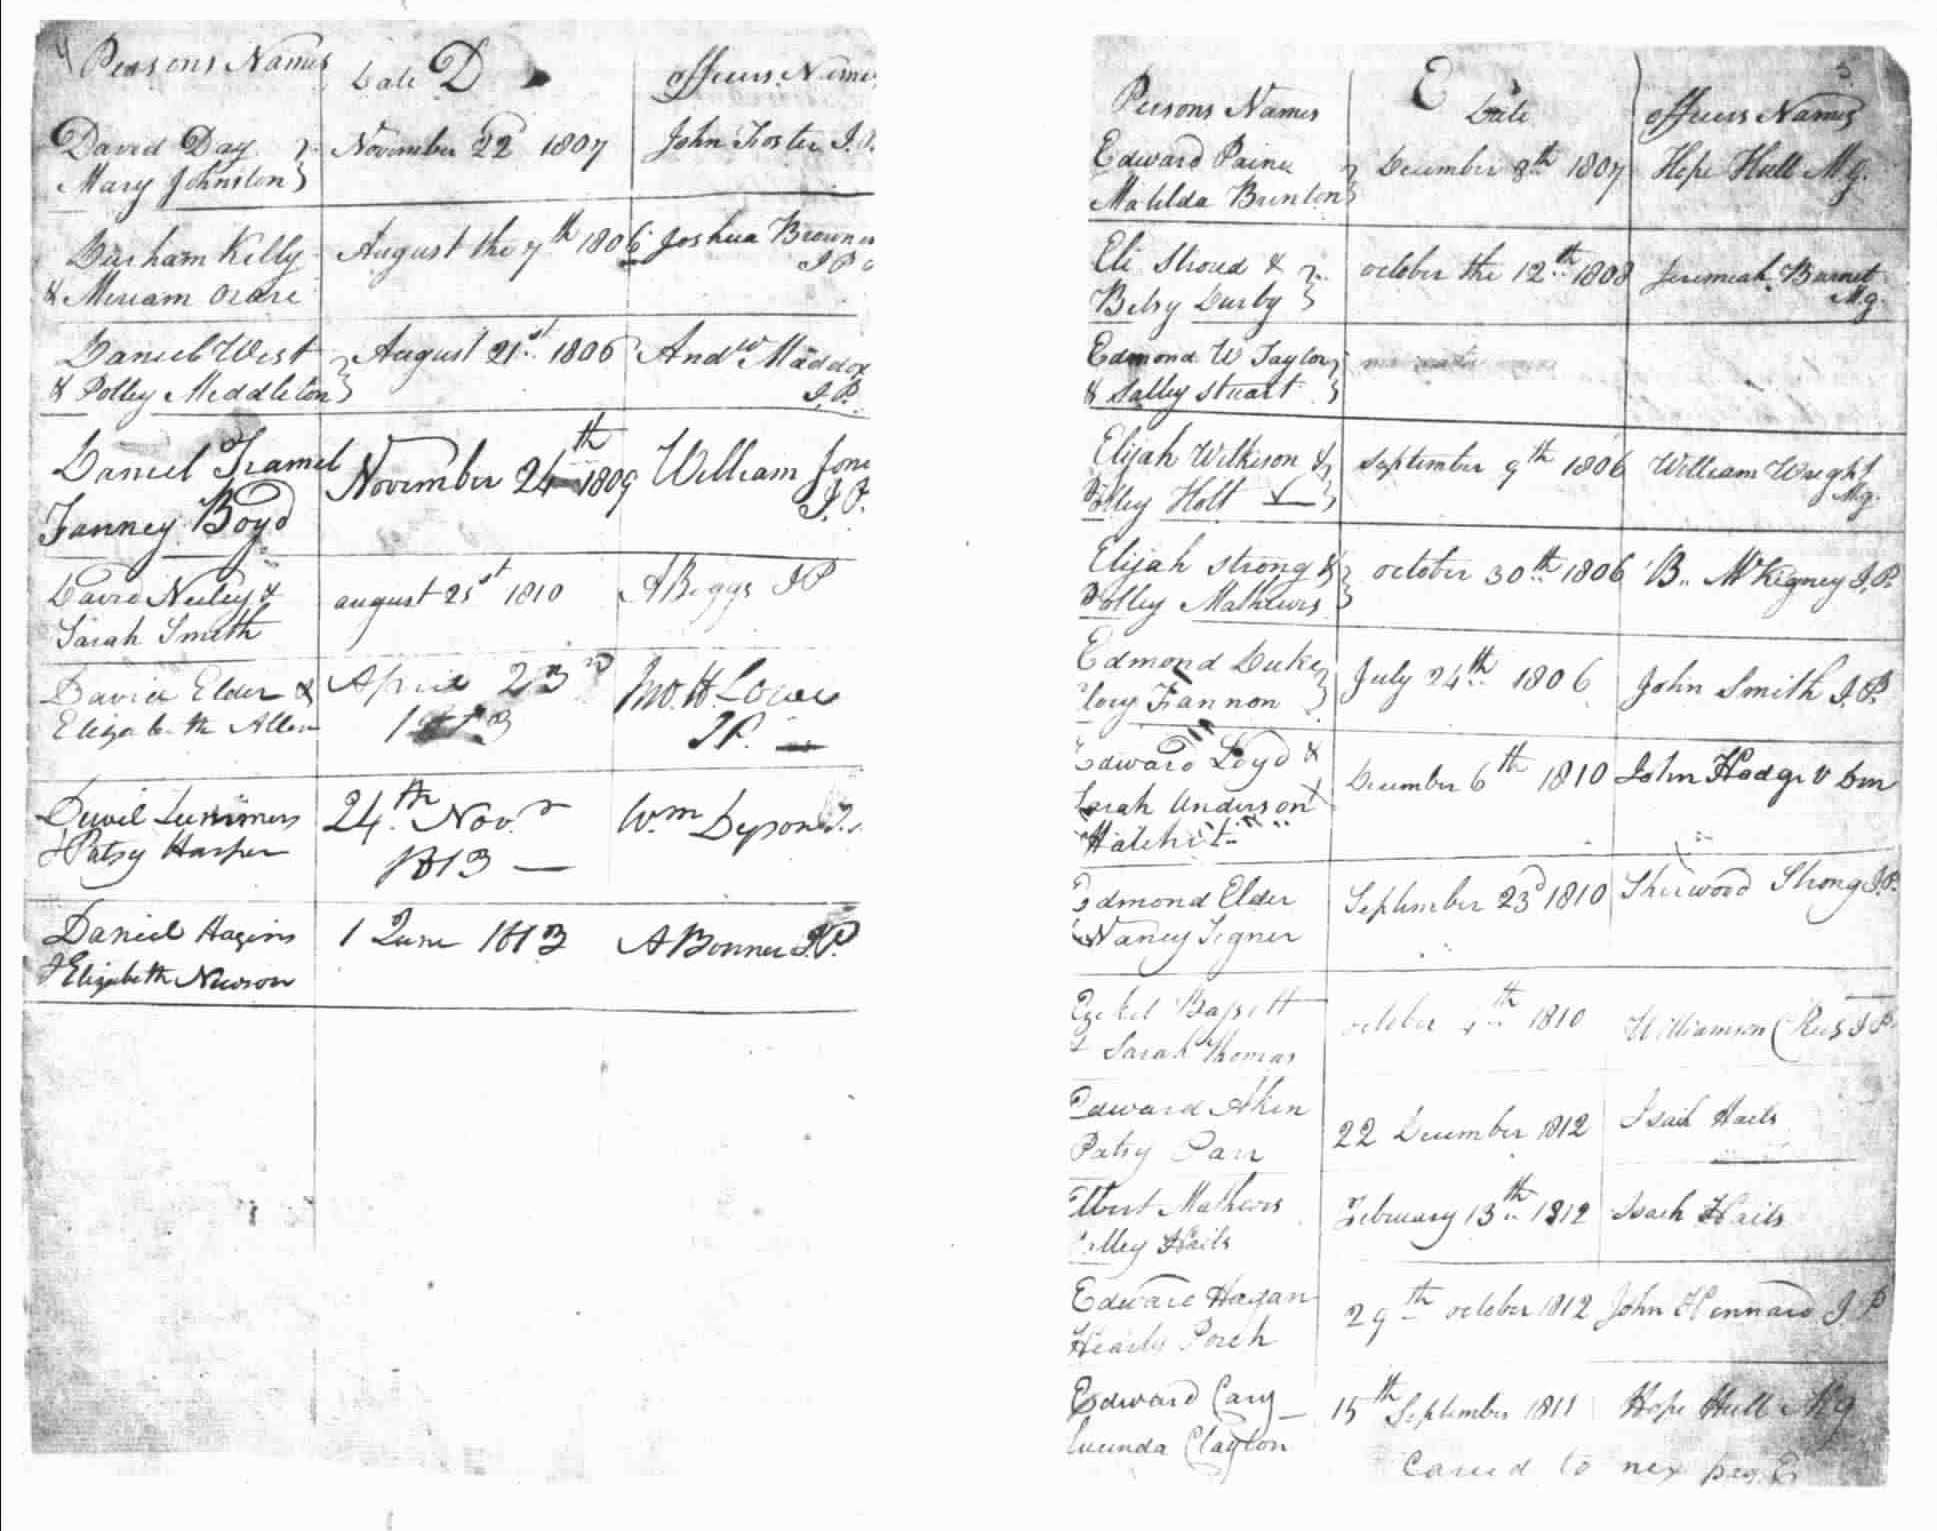 4 Persons Names Date D officers Names
David Day November 22d 1807 John Foster J.P.
Mary Johnston
Durham Kelly August the 7th 1806 Joshua Browner
J P
& Meriam
Daniel West August 21st 1806 Andw Maddox
& Polley Meddleton J.P.
Daniel Tramel November 24th 1809 William Jone
Fanney Boyd J.P.
David Neeley & august 21st 1810 A Beggs J P
Sarah Smith
David Elder & April 23rd Jno. H Lowe
Elizabeth Allen 1813 J.P.
Duvil Lummers 24th Novr Wm Dyson J.
& Patsy Harper 1813
Daniel Hagins 1 June 1813 A Bonner J.P.
& Elizabeth Newson
E 5
Persons Names Date officers Names
Edward Paine December 8th 1807 Hope Hull M.g.
Matilda Brenton
Eli Stroud & october the 12th 1808 Jeremiah Burnet
Betsy Darby M.g.
Edmond W Taylor
& Salley Stuart
Elijah Wilkison & September 9th 1806 William Wright
Polley Holt M.g.
Elijah Strong & october 30th 1806 B.. McKigney J.P.
Polley Mathews
Edmond Duke July 24th 1806 John Smith J.P.
Fannon
Edward Loyd & December 6th 1810 John Hodge v Dm
Sarah Anderson
Hatchit
Edmond Elder September 23d 1810 Sherwood Strong J.P.
& Nancy Tigner
Ezekel Bassett october th 1810 Williamson Rees J P
& Sarah Thomas
Edward Akin 22 December 1812 Isaih Hails
Patsy Carr
Elbert Mathews February 13th 1812 Isaih Hails
Hails
Edward Hagan 29th october 1812 John Hennard J P
Porch
Edward Cary 15th September 1811 Hope Hull M g
Lucinda Clayton
Caried to nex